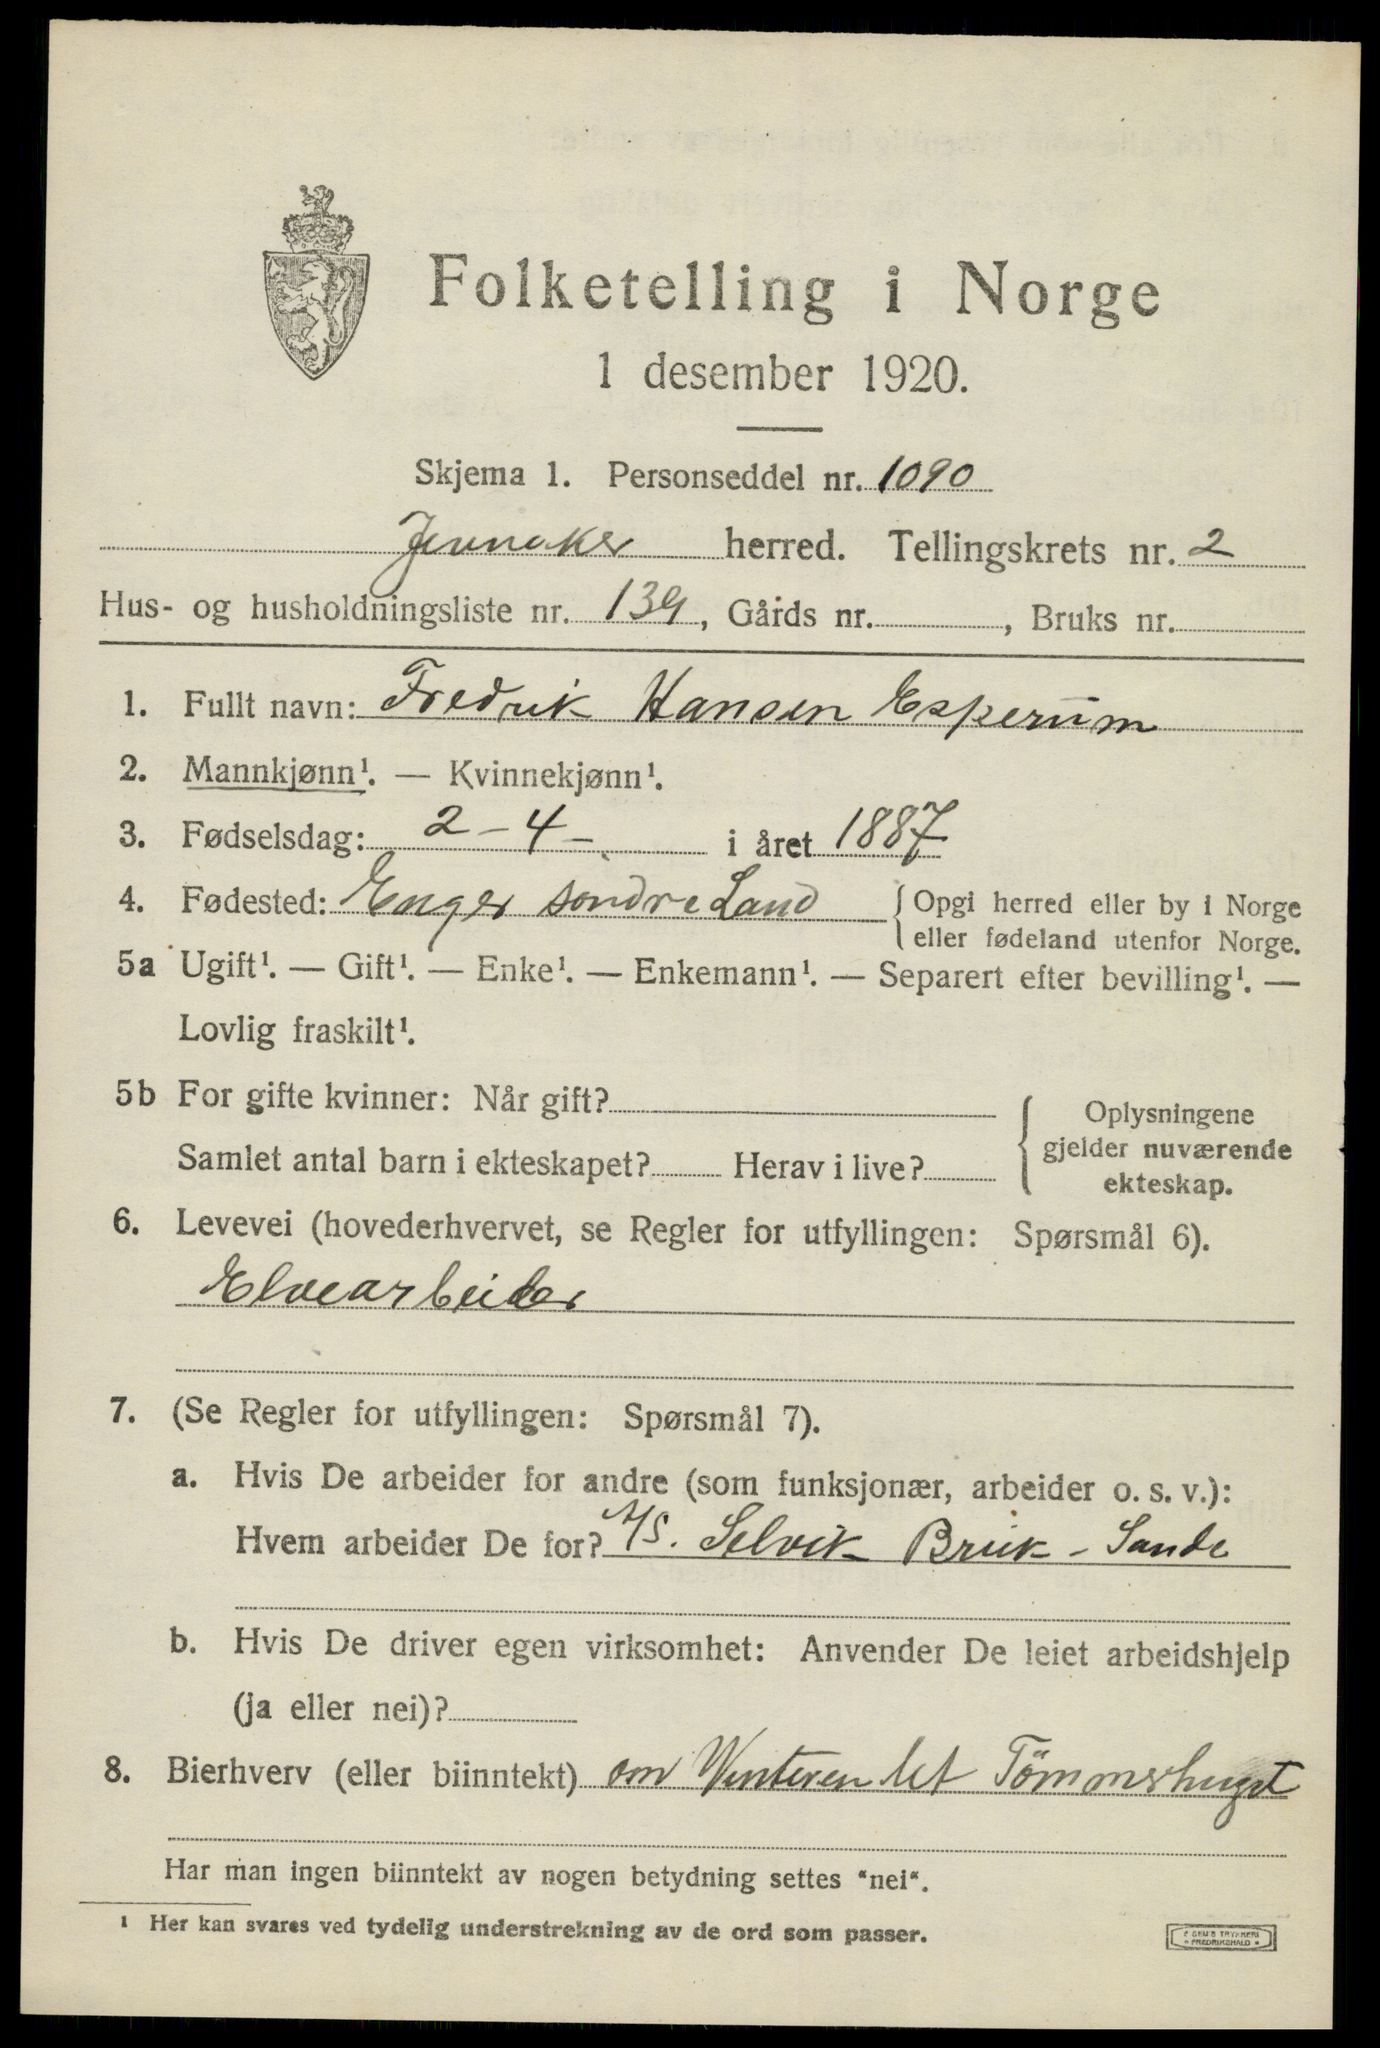 Folketelling i Norge
1 desember 1920.
Skjema 1. Personseddel nr. 1090
Jevnaker herred. Tellingskrets nr. 2
Hus- og husholdningsliste nr. 139, Gårds nr. , Bruks nr.
1. Fullt navn: Fredrik Hansen Esperum
2. Mannkjønn¹. — Kvinnekjønn¹.
3. Fødselsdag: 2-4- i året 1887
4. Fødested: Enger søndre Land { Opgi herred eller by i Norge
eller fødeland utenfor Norge.
5a Ugift¹. — Gift¹. — Enke¹. — Enkemann¹. — Separert efter bevilling¹. —
Lovlig fraskilt¹.
5b For gifte kvinner: Når gift?
Samlet antal barn i ekteskapet? Herav i live?
{ Oplysningene
gjelder nuværende
ekteskap.
6. Levevei (hovederhvervet, se Regler for utfyllingen: Spørsmål 6).
Elvearbeider
7. (Se Regler for utfyllingen: Spørsmål 7).
a. Hvis De arbeider for andre (som funksjonær, arbeider o. s. v.):
Hvem arbeider De for? A/S. Selvik Bruk - Sande
b. Hvis De driver egen virksomhet: Anvender De leiet arbeidshjelp
(ja eller nei)?
8. Bierhverv (eller biinntekt) om Vinteren lit Tömmerhugst
Har man ingen biinntekt av nogen betydning settes "nei".
¹ Her kan svares ved tydelig understrekning av de ord som passer.
FREDRIKSHALD